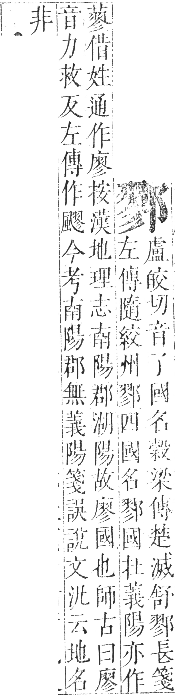 鄝
盧皎切音了國名穀梁傳楚滅舒鄝長箋
左傳隨絞州鄝四國名鄝國杜義陽亦作
蓼借姓通作廖按漢地理志南陽郡湖陽故廖國也師古曰廖
音力救反左傳作飂今考南陽郡無義陽箋誤說文汎云地名
非